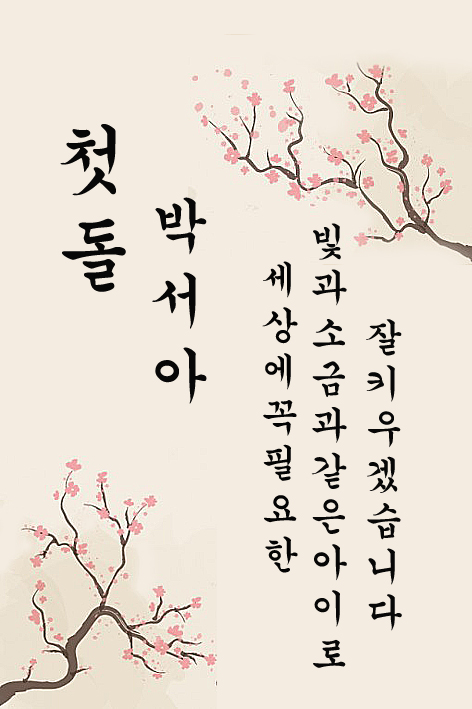 첫돌
박서아
세상에꼭필요한
빛과소금과같은아이로
잘키우겠습니다